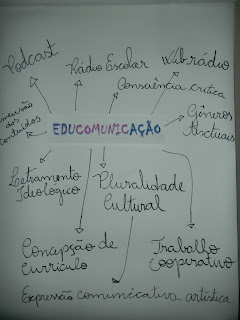 Podcast
Rádio Escolar
Web rádio
Consciência crítica
Gêneros
Textuais
Dimensão
dos
Conteúdos
EDUCOMUNICAÇÃO
Letramento
Ideológico
Pluralidade
Cultural
Concepção de
Currículo
Trabalho
Cooperativo
Expressão comunicativa artística